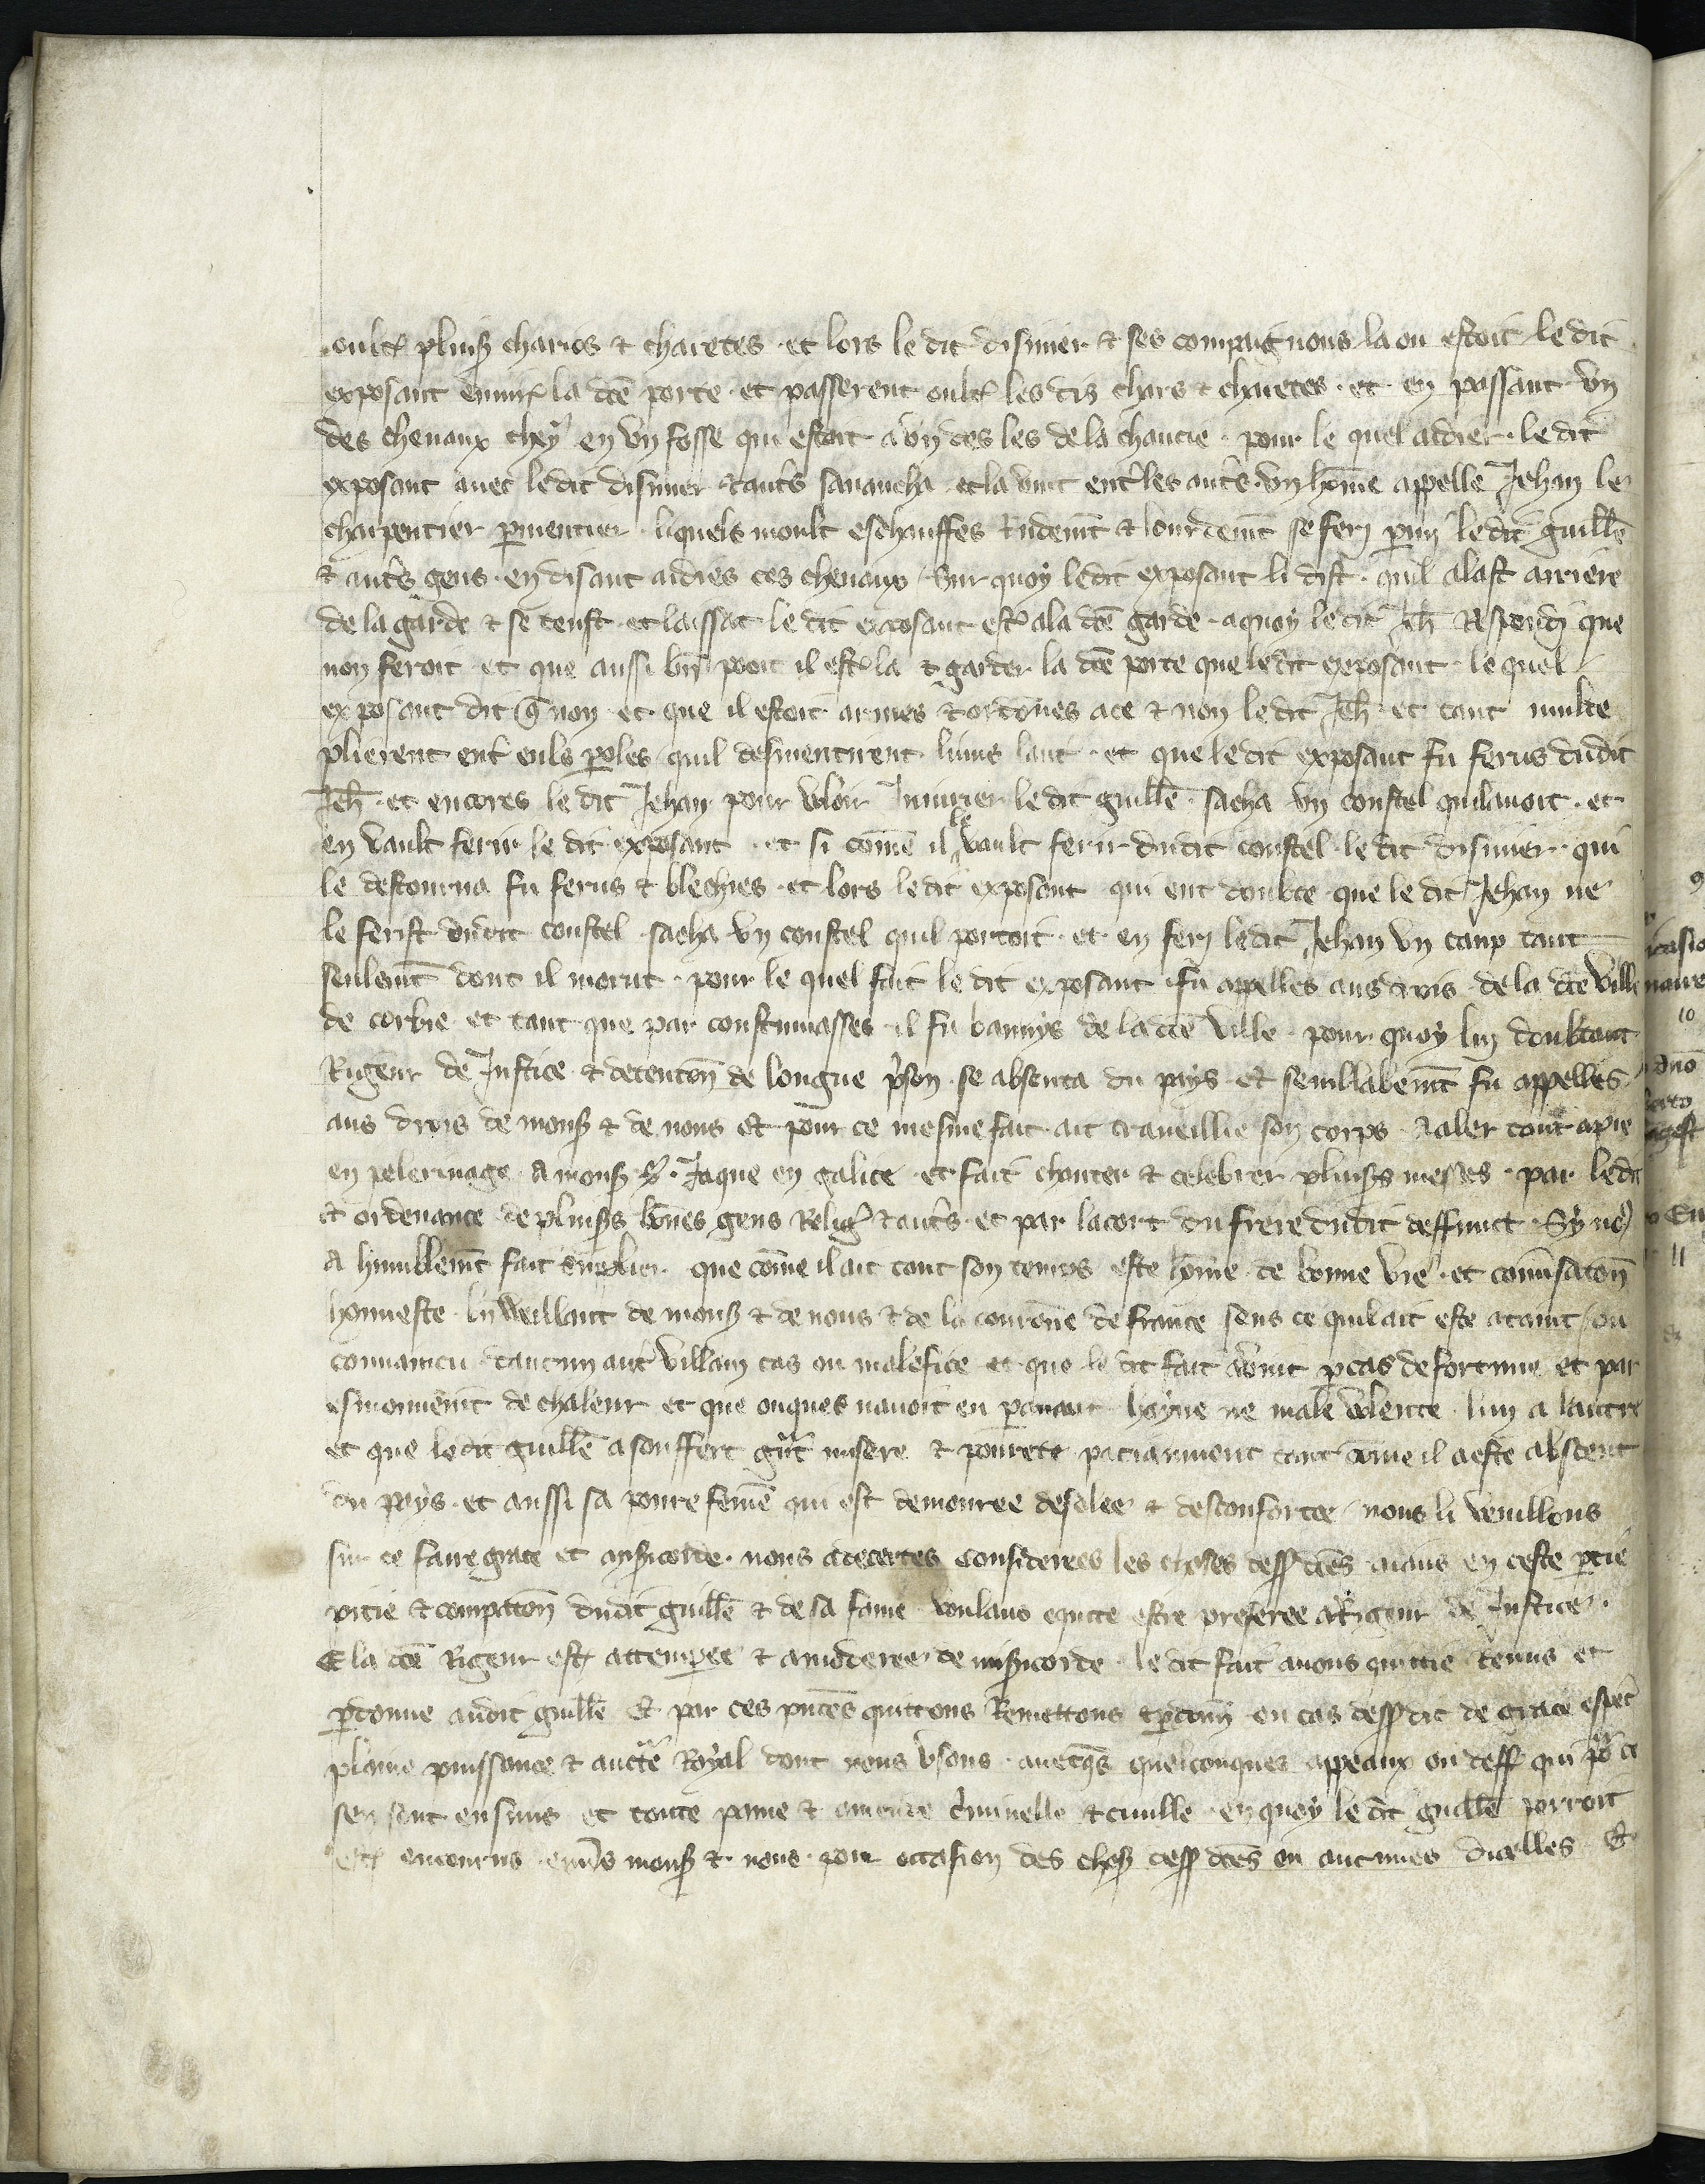 oultre pluiss charios & charetes et lors le dit disinier & ses compaignons la ou estoit le dit
exposant la dce porte et passerent oultre les dis chars & charetes et en passant vn
des cheuaux cheÿ en vn fosse qui estoit a vn des les de la chaucie pour le quel aidier le dit
exposant auec le dit disinier & autrs sauancha et la vint entr les autrs vn home appelle Jehan le
charpentier permentier liquels moult eschauffes Rudemt & lourdemt se feri parmi le dit guille
& autrs gens en disant aidies ces cheuaux / Sur quoy le dit exposant li dist quil alast arriere
de la garde & se teust et laissat le dit exposant estre a la dce garde a quoy le dit Jeh Respondi que
non feroit et que aussi bn pooit il estre la & garder la dce porte que le dit exposant le quel
exposant dit q non et que il estoit armes & ordones a ce & non le dit Jeh et tant multe
plierent entr euls poles quil desmentirent luns laut et que le dit exposant fu ferus dudit
Jeh et encores le dit Jehan pour vloir Jniurier le dit guille sacha vn coustel quil auoit et
en vault ferir le dit exposant et si come il le vault ferir dudit coustel le dit disinier qui
le destourna fu ferus & blechies et lors le dit exposant qui eut doubte que le dit Jehan ne
le ferist dudit coustel sacha vn coustel quil portoit et en feri le dit Jehan vn caup tant
seulemt dont il morut pour le quel fait le dit exposant fu appelles aus drois de la dce ville
de corbie et tant que par coustumasses il fu bannys de la dce ville pour quoy luy doubtant
Rigeur de Justice & detencon de longue prson se absenta du pays et semblablemt fu appelles
aus drois de mons & de nous Et pour ce mesme fait ait traueillie son corps & aler tout a pie
en pelerinage A mons S. Jaque en galice et fait chanter & celebrer pluisrs messes par le dit
& ordenance de pluisrs bones gens Relig & autrs et par lacort du frere dudit deffunct Sy no
A humblemt fait supplier que come il ait tout son temps este home de bonne vie et conusacon
honneste bn weillant de mons & de nous & de la couronne de france sens ce quil ait este ataint / ou
conuaincu daucun autr villain cas ou malefice et que le dit fait auint p cas de fortune et par
esmouuemt de chaleur et que onques nauoit eu parauant hayne ne male vlente lun a lautre
et que le dit guille a souffert grt misere & pourete paciaument tant come il a este absent
du pays et aussi sa poure feme qui est demouree desolee & desconfortee / nous li veuillons
sur ce faire grace et misricorde nous adecertes Consideres les choses dess dces aians en ceste ptie
pitie & compacon dudit guille & de sa fame voulans equite estre preferee a Rigeur de Justice
E la dce Rigeur estre attempree & amoderee de misricorde le dit fait auons quittie Remis et
pdonne audit guille Et par ces pntes quittons Remettons & pdonns ou cas dessdit de grace especl
plaine puissance & auctte Royal dont nous vsons auecqs quelconques appeaux ou deff qui pr ce
sen sont ensuius et toute paine & amende criminelle & ciuille en quoy le dit guille porroit
estre encourus enuers mons & nous pour occasion des choses dess dces ou aucunes dicelles Et